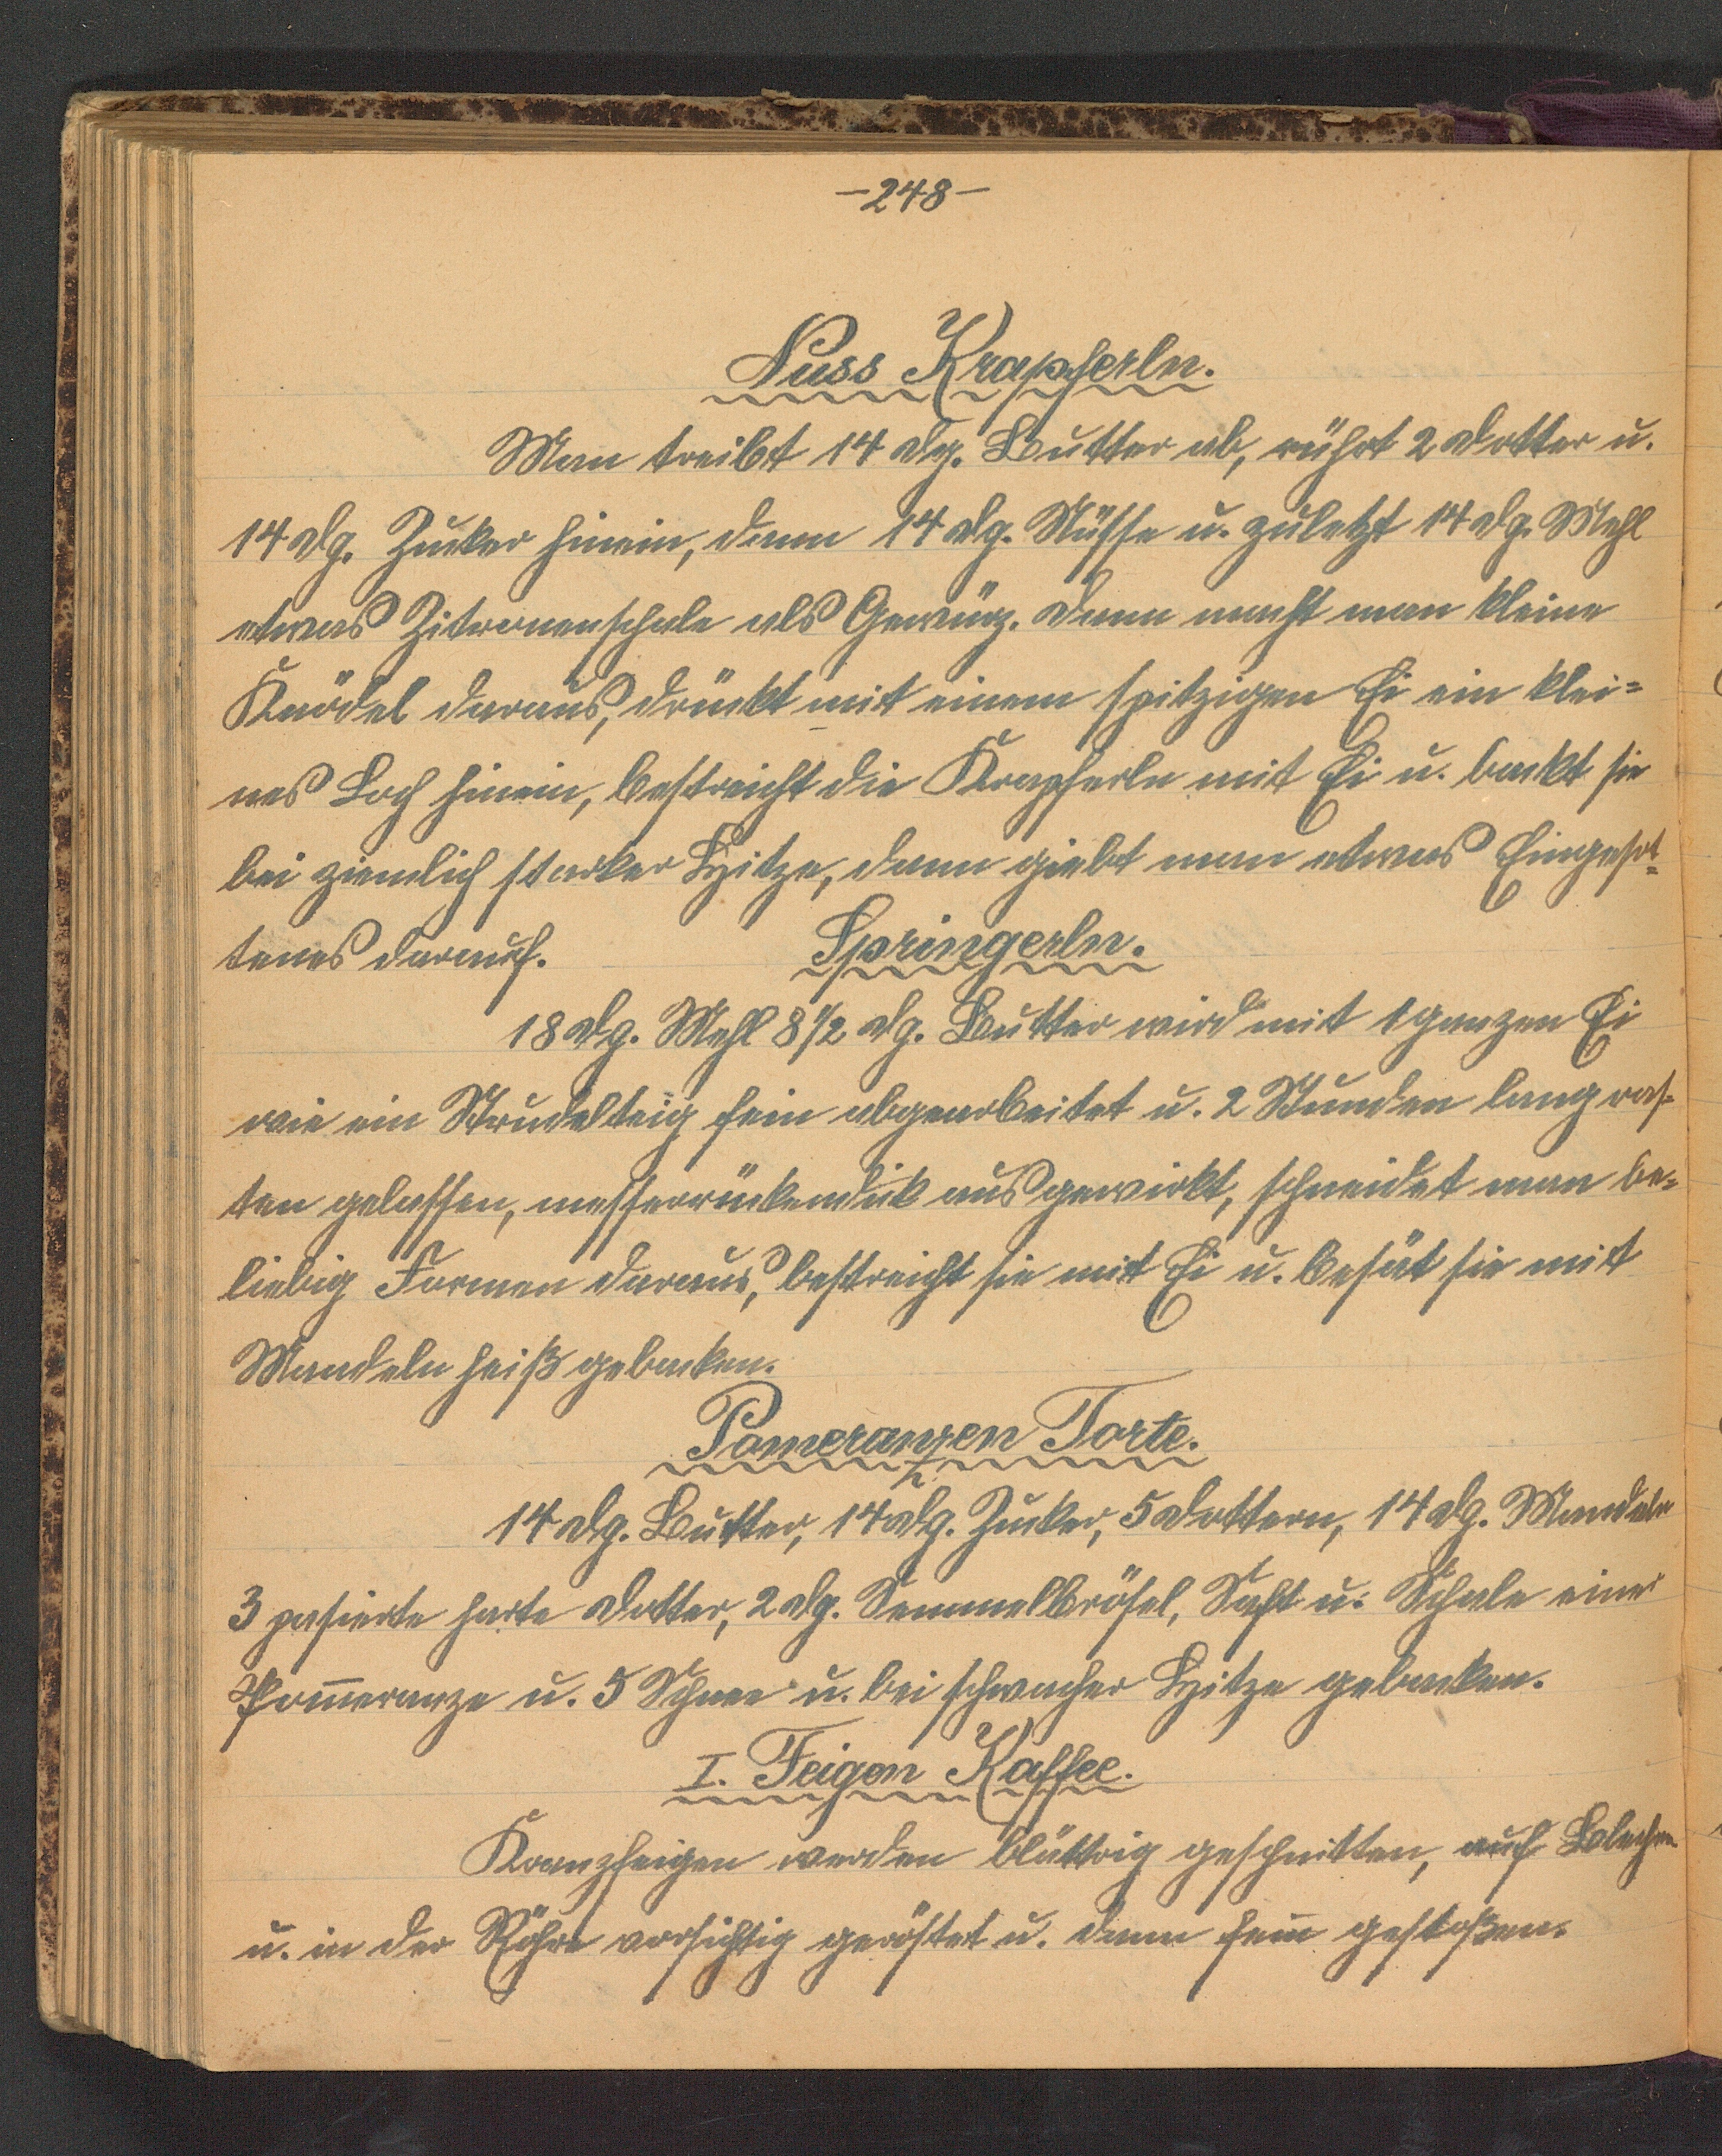 -248-
Nuss Krapferln.
Man treibt 14 dg. Butter ab, rührt 2 Dotter u.
14 dg. Zucker hinein, dann 14 dg. Nüsse u. zuletzt 14 dg. Mehl
etwas Zitronenschale als Gewürz. Dann macht man kleine
Knödel daraus, drückt mit einem spitzigen Ei ein klei=
nes Loch hinein, bestreicht die Krapferln mit Ei u. backt sie
bei ziemlich starker Hitze, dann giebt man etwas Eingesot=
tenes darauf. Springerln.
18 dg. Mehl 8 1/2 dg. Butter wird mit 1 ganzen Ei
wie ein Strudelteig fein abgearbeitet u. 2 Stunden lang ras-
ten gelassen, messerrückendick ausgewirkt, schneidet man be=
liebig Formen daraus, bestreicht sie mit Ei u. besät sie mit
Mandeln heiß gebacken.
Pomeranzen Torte.
14 dg. Butter, 14 dg. Zucker, 5 Dottern, 14 dg. Mandeln
3 pasierte harte Dotter, 2 dg. Semmelbrösel, Saft u. Schale einer
Pom̄eranze u. 5 Schnee u. bei schwacher Hitze gebacken.
I. Feigen Kaffee.
Kranzfeigen werden blättrig geschnitten, auf Blechen
u. in der Röhre vorsichtig geröstet u. dann fein gestoßen.